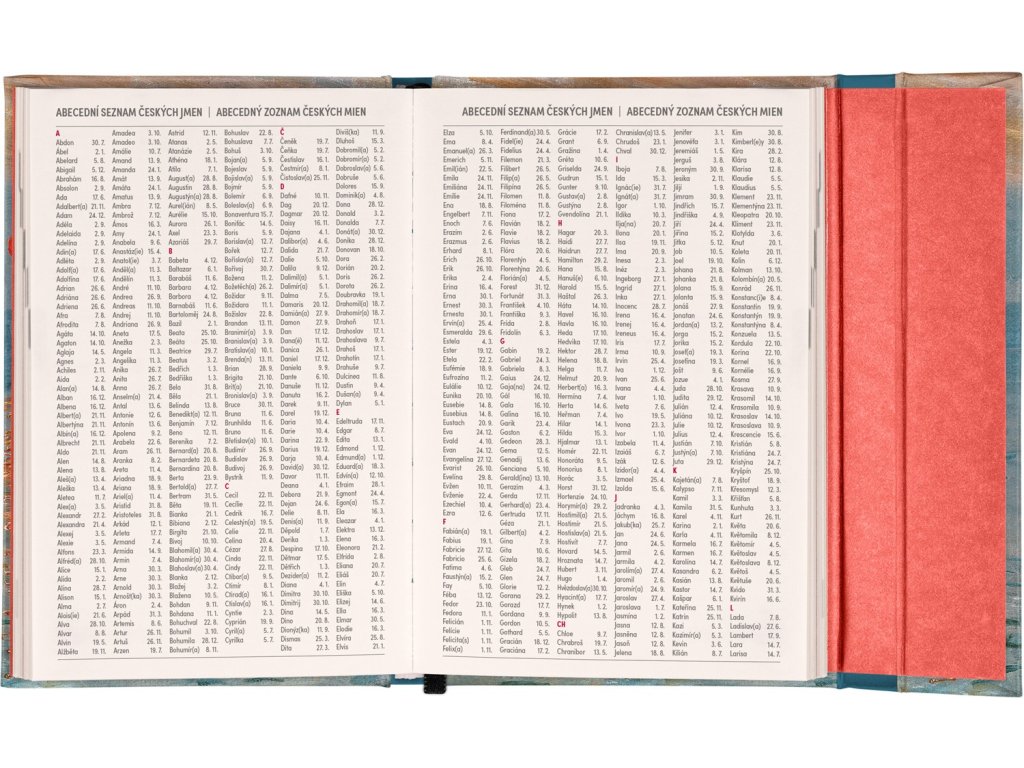 ABECEDNÍ SEZNAM ČESKÝCH JMEN | ABECEDNÝ ZOZNAM ČESKÝCH MIEN
A
Abdon 30. 7.
Ábel 2. 1.
Abelard 5. 8.
Abigail 5. 12.
Abrahám 16. 8.
Absolon 2. 9.
Ada 17. 6.
Adalbert(a) 21. 11.
Adam 24. 12.
Adéla 2. 9.
Adelaida 2. 9.
Adelína 2. 9.
Adin(a) 17. 6.
Adléta 2. 9.
Adolf(a) 17. 6.
Adolfína 17. 6.
Adrian 26. 6.
Adriána 26. 6.
Adriena 26. 6.
Afra 7. 8.
Afrodita 7. 8.
Agáta 14. 10.
Agaton 14. 10.
Aglaja 14. 5.
Agnes 2. 3.
Achiles 2. 11.
Aida 2. 2.
Alan(a) 14. 8.
Alban 16. 12.
Albena 16. 12.
Albert(a) 21. 11.
Albertýna 21. 11.
Albín(a) 16. 12.
Albrecht 21. 11.
Aldo 21. 11.
Alen 14. 8.
Alena 13. 8.
Aleš(a) 13. 4.
Aleška 13. 4.
Aletea 11. 7.
Alex(a) 3. 5.
Alexandr 27. 2.
Alexandra 21. 4.
Alexej 3. 5.
Alexie 3. 5.
Alfons 23. 3.
Alfréd(a) 28. 10.
Alice 15. 1.
Alida 2. 2.
Alina 28. 7.
Alison 15. 1.
Alma 2. 7.
Alois(ie) 21. 6.
Alva 28. 10.
Alvar 8. 8.
Alvin 19. 5.
Alžběta 19. 11.
Amadea 3. 10.
Amadeo 3. 10.
Amálie 10. 7.
Amand 13. 9.
Amanda 24. 1.
Amát 13. 9.
Amáta 24. 1.
Amatus 13. 9.
Ambra 7. 12.
Ambrož 7. 12.
Ámos 16. 3.
Amy 24. 1.
Anabela 9. 6.
Anastáz(ie) 15. 4.
Anatol(ie) 3. 7.
Anděl(a) 11. 3.
Anděla 11. 3.
André 11. 10.
Andrea 26. 9.
Andreas 11. 10.
Andrej 11. 10.
Andriana 26. 9.
Aneta 17. 5.
Anežka 2. 3.
Angela 11. 3.
Angelika 11. 3.
Anika 26. 7.
Anita 26. 7.
Anna 26. 7.
Anselm(a) 21. 4.
Antal 13. 6.
Antonie 12. 6.
Antonín 13. 6.
Apolena 9. 2.
Arabela 22. 6.
Aram 26. 11.
Aranka 8. 2.
Areta 11. 4.
Ariadna 18. 9.
Ariana 18. 9.
Ariel(a) 11. 4.
Aristid 31. 8.
Aristoteles 31. 8.
Arkád 12. 1.
Arleta 17. 7.
Armand 7. 4.
Armida 14. 9.
Armin 7. 4.
Arna 30. 3.
Arne 30. 3.
Arnold 30. 3.
Arnošt(ka) 30. 3.
Áron 2. 4.
Arpád 31. 3.
Artemis 8. 6.
Artur 26. 11.
Artuš 26. 11.
Arzen 19. 7.
Astrid 12. 11.
Atanas 2. 5.
Atanázie 2. 5.
Athéna 18. 1.
Atila 7. 1.
August(a) 28. 8.
Augustin 28. 8.
Augustýn(a) 28. 8.
Aurel(ián) 8. 5.
Aurélie 15. 10.
Aurora 26. 1.
Axel 23. 3.
Azariáš 29. 7.
B
Babeta 4. 12.
Baltazar 6. 1.
Barabáš 11. 6.
Barbara 4. 12.
Barbora 4. 12.
Barnabáš 11. 6.
Bartoloměj 24. 8.
Bazil 2. 1.
Beata 25. 10.
Beáta 25. 10.
Beatrice 29. 7.
Beatus 3. 2.
Bedřich 1. 3.
Bedřiška 1. 3.
Bela 31. 8.
Běla 21. 1.
Belinda 13. 8.
Benedikt(a) 12. 11.
Benjamin 7. 12.
Beno 12. 11.
Berenika 7. 2.
Bernard(a) 20. 8.
Bernardeta 20. 8.
Bernardina 20. 8.
Berta 23. 9.
Bertold(a) 27. 7.
Bertram 31. 5.
Běta 19. 11.
Bianka 21. 1.
Bibiana 2. 12.
Birgita 21. 10.
Bivoj 10. 9.
Blahomil(a) 30. 4.
Blahomír(a) 30. 4.
Blahoslav(a) 30. 4.
Blanka 2. 12.
Blažej 3. 2.
Blažena 10. 5.
Bohdan 9. 11.
Bohdana 11. 1.
Bohuchval 22. 8.
Bohumil 3. 10.
Bohumila 28. 12.
Bohumír(a) 8. 11.
Bohuslav 22. 8.
Bohuslava 7. 7.
Bohuš 22. 8.
Bojan(a) 5. 9.
Bojeslav 5. 9.
Bojislav(a) 5. 9.
Bojmír 5. 9.
Bolemír 6. 9.
Boleslav(a) 6. 9.
Bonaventura 15. 7.
Bonifác 14. 5.
Boris 5. 9.
Borislav(a) 12. 7.
Bořek 12. 7.
Bořislav(a) 12. 7.
Bořivoj 30. 7.
Božena 11. 2.
Božetěch(a) 26. 2.
Božidar 9. 11.
Božidara 11. 1.
Božislav 22. 8.
Brandon 13. 11.
Branimír(a) 3. 9.
Branislav(a) 3. 9.
Bratislav(a) 10. 1.
Brenda(n) 13. 11.
Brian 28. 4.
Brigita 21. 10.
Brit(a) 21. 10.
Bronislav(a) 3. 9.
Bruce 30. 11.
Bruna 11. 6.
Brunhilda 11. 6.
Bruno 11. 6.
Břetislav(a) 10. 1.
Budimír 26. 9.
Budislav 26. 9.
Budivoj 26. 9.
Bystrík 11. 9.
C
Cecil 22. 11.
Cecílie 22. 11.
Cedrik 16. 7.
Celestýn(a) 19. 5.
Celie 22. 11.
Celina 20. 4.
Cézar 27. 8.
Cinda 22. 11.
Cindy 22. 11.
Ctibor(a) 9. 5.
Ctimír 8. 1.
Ctirad(a) 16. 1.
Ctislav(a) 16. 1.
Cyntie 2. 3.
Cyprián 19. 9.
Cyril(a) 5. 7.
Cyrilka 5. 7.
Č
Čeněk 19. 7.
Čeňka 19. 7.
Čestislav 16. 1.
Čestmír(a) 8. 1.
Čistoslav(a) 25. 11.
D
Dafné 10. 11.
Dag 20. 12.
Dagmar 20. 12.
Daisy 16. 11.
Dajana 4. 1.
Dalibor(a) 4. 6.
Dalida 21. 7.
Dalie 5. 10.
Dalila 9. 12.
Dalimil(a) 5. 1.
Dalimír(a) 5. 1.
Dalma 7. 5.
Damaris 20. 12.
Damián(a) 27. 9.
Damon 27. 9.
Dan 17. 12.
Dana(é) 11. 12.
Danica 26. 1.
Daniel 17. 12.
Daniela 9. 9.
Dante 6. 10.
Danuše 11. 12.
Danuta 16. 2.
Darek 9. 11.
Darel 19. 12.
Daria 10. 4.
Darie 10. 4.
Darina 22. 9.
Darius 19. 12.
Darja 10. 4.
David(a) 30. 12.
Davor 11. 11.
Deana 4. 1.
Debora 21. 9.
Dejan 24. 6.
Delie 8. 11.
Denis(a) 11. 9.
Děpold 1. 7.
Derika 1. 3.
Despina 17. 10.
Dětmar 17. 5.
Dětřich 1. 3.
Dezider(a) 11. 2.
Diana 4. 1.
Dimitra 30. 10.
Dimitrij 30. 10.
Dina 14. 5.
Dino 20. 8.
Dionýz(ka) 11. 9.
Dismas 25. 3.
Dita 27. 3.
Diviš(ka) 11. 9.
Dluhoš 15. 3.
Dobromil(a) 5. 2.
Dobromír(a) 5. 2.
Dobroslav(a) 5. 6.
Dobruše 5. 6.
Dolores 15. 9.
Dominik(a) 4. 8.
Dona 28. 12.
Donald 3. 2.
Donalda 7. 7.
Donát(a) 30. 12.
Donika 28. 12.
Donovan 18. 10.
Dora 26. 2.
Dorián 20. 2.
Doris 26. 2.
Dorota 26. 2.
Doubravka 19. 1.
Drahomil(a) 18. 7.
Drahomír(a) 18. 7.
Drahoň 17. 1.
Drahoslav 17. 1.
Drahoslava 9. 7.
Drahoš 17. 1.
Drahotín 17. 1.
Drahuše 9. 7.
Dulcinea 11. 8.
Dustin 9. 4.
Dušan(a) 9. 4.
Dylan 5. 1.
E
Edeltruda 17. 11.
Edgar 8. 7.
Edita 13. 1.
Edmond 1. 12.
Edmund(a) 1. 12.
Eduard(a) 18. 3.
Edvín(a) 12. 10.
Efraim 28. 1.
Egmont 24. 4.
Egon(a) 15. 7.
Ela 16. 3.
Eleazar 4. 1.
Elektra 13. 12.
Elena 16. 3.
Eleonora 21. 2.
Elfrída 2. 8.
Eliana 20. 7.
Eliáš 20. 7.
Elin 4. 7.
Eliška 5. 10.
Elizej 14. 6.
Ella 16. 3.
Elmar 30. 5.
Elodie 16. 3.
Elvíra 25. 8.
Elvis 21. 1.
ABECEDNÍ SEZNAM ČESKÝCH JMEN | ABECEDNÝ ZOZNAM ČESKÝCH MIEN
Elza 5. 10.
Ema 8. 4.
Emanuel(a) 26. 3.
Emerich 5. 11.
Emil(ián) 22. 5.
Emila 24. 11.
Emiliána 24. 11.
Emílie 24. 11.
Ena 18. 8.
Engelbert 7. 11.
Enoch 7. 6.
Erazim 2. 6.
Erazmus 2. 6.
Erhard 8. 1.
Erich 26. 10.
Erik 26. 10.
Erika 2. 4.
Erina 16. 4.
Erna 30. 1.
Ernest 30. 3.
Ernesta 30. 1.
Ervín(a) 25. 4.
Esmeralda 29. 6.
Estela 4. 3.
Ester 19. 12.
Etela 22. 2.
Eufémie 18. 9.
Eufrozina 11. 2.
Eulálie 10. 12.
Eunika 20. 10.
Eusebie 14. 8.
Eusebius 14. 8.
Eustach 20. 9.
Eva 24. 12.
Evald 4. 10.
Evan 24. 12.
Evangelína 27. 12.
Evarist 26. 10.
Evelína 29. 8.
Evžen 10. 11.
Evženie 22. 4.
Ezechiel 10. 4.
Ezra 12. 6.
F
Fabián(a) 19. 1.
Fabius 19. 1.
Fabricie 27. 12.
Fabricio 25. 6.
Fatima 4. 6.
Faustýn(a) 15. 2.
Fay 5. 10.
Féba 13. 12.
Fedor 23. 10.
Fedora 11. 1.
Felicián 1. 11.
Felicie 1. 11.
Felicita(s) 1. 11.
Felix(a) 1. 11.
Ferdinand(a) 30. 5.
Fidel(ie) 24. 4.
Fidelius 24. 4.
Filemon 21. 3.
Filibert 26. 5.
Filip(a) 26. 5.
Filipína 26. 5.
Filomen 11. 8.
Filoména 11. 8.
Fiona 17. 2.
Flavián 18. 2.
Flavie 18. 2.
Flavius 18. 2.
Flóra 20. 6.
Florentýn 4. 5.
Florentýna 20. 6.
Florián(a) 4. 5.
Forest 31. 12.
Fortunát 31. 3.
František 4. 10.
Františka 9. 3.
Frída 2. 8.
Fridolín 6. 3.
G
Gabin 19. 2.
Gabriel 24. 3.
Gabriela 8. 3.
Gaius 24. 12.
Gaja(na) 24. 12.
Gál 16. 10.
Gala 16. 10.
Galina 16. 10.
Garik 23. 4.
Gaston 6. 2.
Gedeon 28. 3.
Gema 12. 5.
Genadij 13. 6.
Genciana 5. 10.
Gerald(ína) 13. 10.
Gerazim 4. 3.
Gerda 17. 11.
Gerhard(a) 23. 4.
Gertruda 17. 11.
Géza 21. 1.
Gilbert(a) 4. 2.
Gina 7. 9.
Gita 10. 6.
Gizela 18. 2.
Gleb 24. 7.
Glen 24. 7.
Glorie 12. 2.
Gorana 29. 2.
Gorazd 17. 7.
Gordana 9. 9.
Gordon 10. 5.
Gothard 5. 5.
Gracián 18. 12.
Graciána 17. 2.
Grácie 17. 2.
Grant 6. 9.
Gražina 1. 4.
Gréta 10. 6.
Griselda 24. 9.
Gudrun 15. 1.
Gunter 9. 10.
Gustav(a) 2. 8.
Gustýna 2. 8.
Gvendolína 21. 1.
H
Hagar 20. 3.
Haida 27. 7.
Haidi 27. 7.
Haidrun 27. 7.
Hamilton 29. 2.
Hana 15. 8.
Hanuš(e) 6. 10.
Harold 15. 5.
Haštal 26. 3.
Háta 14. 10.
Havel 16. 10.
Havla 16. 10.
Heda 17. 10.
Hedvika 17. 10.
Hektor 28. 7.
Helena 18. 8.
Helga 11. 7.
Helmut 20. 9.
Herbert(a) 16. 3.
Hermína 7. 4.
Herta 14. 6.
Heřman 7. 4.
Hilar 14. 1.
Hilda 15. 3.
Hjalmar 13. 1.
Homér 22. 11.
Honoráta 9. 5.
Honorius 8. 1.
Horác 3. 5.
Horst 31. 12.
Hortenzie 24. 10.
Horymír(a) 29. 2.
Hostimil(a) 21. 5.
Hostimír 21. 5.
Hostislav(a) 21. 5.
Hostivít 7. 7.
Hovard 14. 5.
Hroznata 14. 7.
Hubert 3. 11.
Hugo 1. 4.
Hvězdoslav(a) 30. 10.
Hyacint(a) 17. 7.
Hynek 1. 2.
Hypolit 13. 8.
CH
Chloe 9. 7.
Chrabroš 19. 7.
Chranibor 13. 5.
Chranislav(a) 13. 5.
Chrudoš 23. 1.
Chval 30. 12.
I
Iboja 7. 8.
Ida 15. 3.
Ignác(ie) 31. 7.
Ignát(a) 31. 7.
Igor 1. 10.
Ildika 10. 3.
Ilja(na) 20. 7.
Ilona 20. 1.
Ilsa 19. 11.
Ima 20. 9.
Inesa 2. 3.
Inéz 2. 3.
Ingeborg 27. 1.
Ingrid 27. 1.
Inka 27. 1.
Inocenc 28. 7.
Irena 16. 4.
Irenej 16. 4.
Ireneus 16. 4.
Iris 17. 7.
Irma 10. 9.
Irvin 25. 4.
Iva 1. 12.
Ivan 25. 6.
Ivana 4. 4.
Ivar 1. 10.
Iveta 7. 6.
Ivo 19. 5.
Ivona 23. 3.
Ivor 1. 10.
Izabela 11. 4.
Izaiáš 6. 7.
Izák 12. 6.
Izidor(a) 4. 4.
Izmael 25. 4.
Izolda 15. 6.
J
Jadranka 4. 3.
Jáchym 16. 8.
Jakub(ka) 25. 7.
Jan 24. 6.
Jana 24. 5.
Jarmil 2. 6.
Jarmila 4. 2.
Jarolím(a) 27. 4.
Jaromil 2. 6.
Jaromír(a) 24. 9.
Jaroslav 27. 4.
Jaroslava 1. 7.
Jasmína 1. 2.
Jasna 12. 8.
Jasněna 12. 8.
Jasoň 12. 8.
Jelena 18. 8.
Jenifer 3. 1.
Jenovéfa 3. 1.
Jeremiáš 1. 5.
Jerguš 3. 8.
Jeroným 30. 9.
Jesika 2. 11.
Jiljí 1. 9.
Jimram 30. 9.
Jindřich 15. 7.
Jindřiška 4. 9.
Jiří 24. 4.
Jiřina 15. 2.
Jiřka 5. 12.
Job 10. 5.
Joel 19. 10.
Johan 21. 8.
Johana 21. 8.
Jolana 15. 9.
Jolanta 15. 9.
Jonáš 27. 9.
Jonatan 24. 6.
Jordan(a) 13. 2.
Jorga 15. 2.
Jorika 15. 2.
Josef(a) 19. 3.
Josefína 19. 3.
Jošt 9. 6.
Jozue 4. 1.
Juda 28. 10.
Judita 29. 12.
Julián 12. 4.
Juliána 10. 12.
Julie 10. 12.
Julius 12. 4.
Justián 7. 10.
Justýn(a) 7. 10.
Juta 29. 12.
K
Kajetán(a) 7. 8.
Kalypso 7. 11.
Kamil 3. 3.
Kamila 31. 5.
Karel 4. 11.
Karina 2. 1.
Karla 4. 11.
Karmela 16. 7.
Karmen 16. 7.
Karolína 14. 7.
Kasandra 6. 2.
Kasián 13. 8.
Kastor 14. 7.
Kašpar 6. 1.
Kateřina 25. 11.
Katrin 25. 11.
Kazi 5. 3.
Kazimír(a) 5. 3.
Kevin 3. 6.
Kilián 8. 7.
Kim 30. 8.
Kimberl(e)y 30. 8.
Kira 28. 2.
Klára 12. 8.
Klarisa 12. 8.
Klaudie 5. 5.
Klaudius 5. 5.
Klement 23. 11.
Klementýna 23. 11.
Kleopatra 20. 10.
Kliment 23. 11.
Klotylda 3. 6.
Knut 20. 1.
Koleta 20. 11.
Kolin 6. 12.
Kolman 13. 10.
Kolombín(a) 20. 5.
Konrád 26. 11.
Konstanc(i)e 8. 4.
Konstantin 19. 9.
Konstantýn 19. 9.
Konstantýna 8. 4.
Konzuela 13. 5.
Kordula 22. 10.
Korina 22. 10.
Kornel 16. 9.
Kornélie 16. 9.
Kosma 27. 9.
Krasava 10. 9.
Krasomil 14. 10.
Krasomila 10. 9.
Kraslav 14. 10.
Krasoslava 10. 9.
Krescencie 15. 6.
Kristián 5. 8.
Kristiána 24. 7.
Kristýna 24. 7.
Kryšpín 25. 10.
Kryštof 18. 9.
Křesomysl 12. 3.
Křišťan 5. 8.
Kunhuta 3. 3.
Kurt 26. 11.
Květa 20. 6.
Květomila 8. 12.
Květomír 4. 5.
Květoslav 4. 5.
Květoslava 8. 12.
Květoš 4. 5.
Květuše 20. 6.
Kvido 31. 3.
Kvirín 16. 6.
L
Lada 7. 8.
Ladislav(a) 27. 6.
Lambert 17. 9.
Lara 14. 7.
Larisa 14. 7.